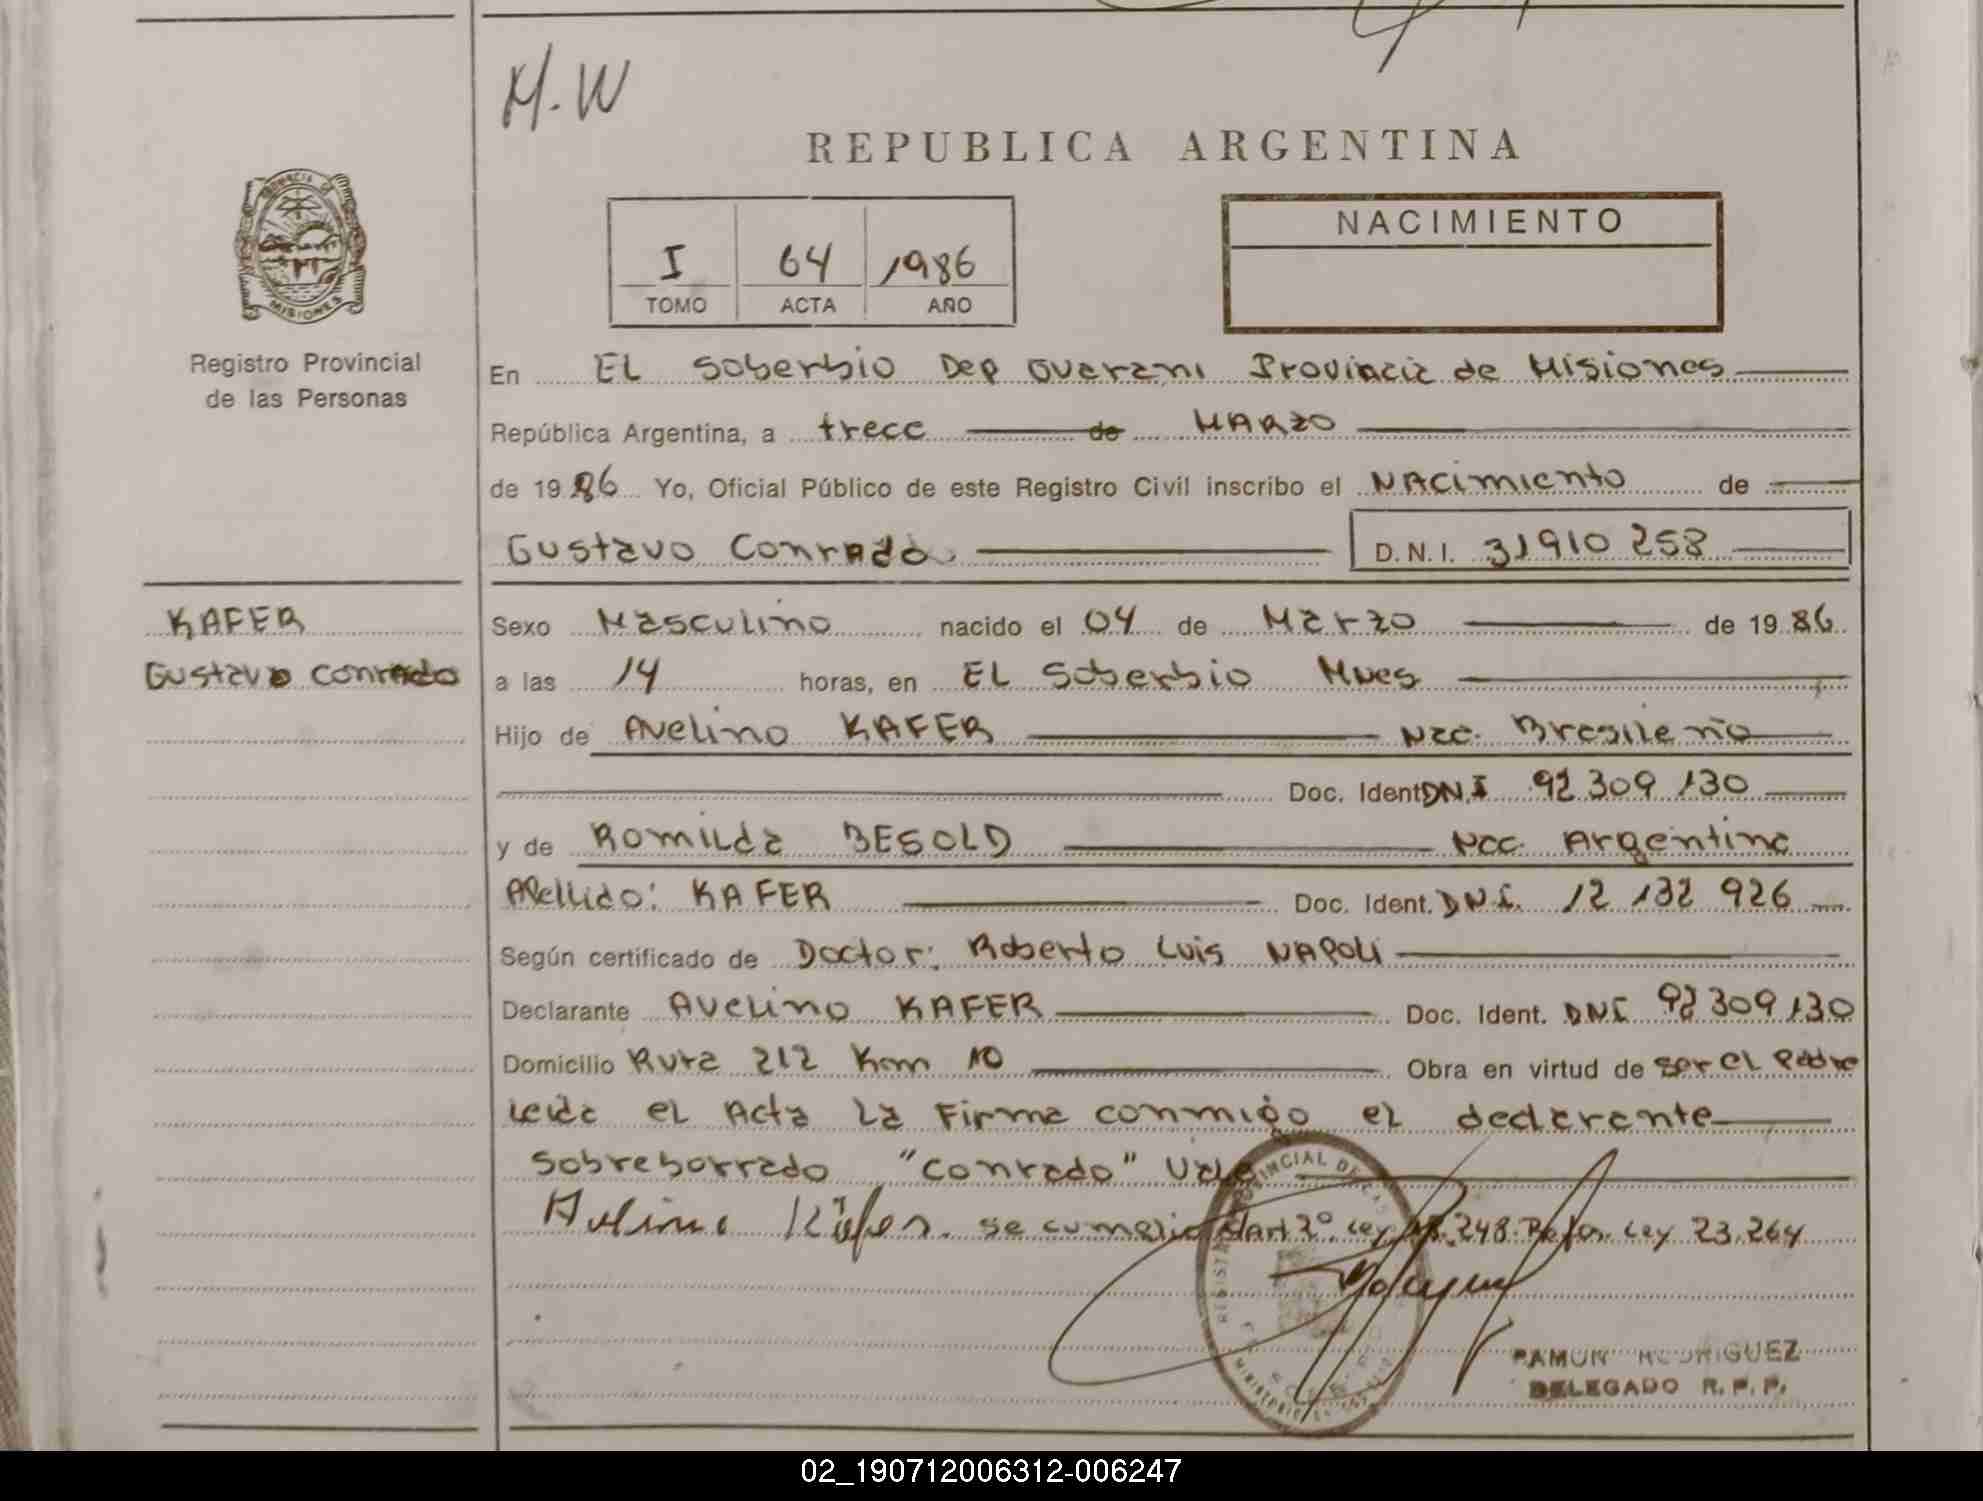 H.W
REPUBLICA ARGENTINA
PROVINCIA DE
MISIONES
I 64 1986
TOMO ACTA AÑO
NACIMIENTO
Registro Provincial
de las Personas
En EL Soberbio Dep Guarani Provincia de Misiones
República Argentina, a trece de MARZO
de 1986 Yo, Oficial Público de este Registro Civil inscribo el NAcimiento de
Gustavo Conrado D.N.I. 31910 258
KAFER
Gustavo conrado
Sexo Masculino nacido el 04 de Marzo de 1986
a las 14 horas, en EL Soberbio Mnes
Hijo de Avelino KAFER Nac. Brasileño
Doc. Ident DNI 92 309 130
y de Romilda BESOLD Nac. Argentina
Apellido: KAFER Doc. Ident. DNI. 12 132 926
Según certificado de Doctor: Roberto Luis NAPOLI
Declarante Avelino KAFER Doc. Ident. DNI 92 309 130
Domicilio Ruta 212 Km 10 Obra en virtud de ser el Padre
Leida el Acta La Firma conmigo el declarante
Sobreborrado "conrado" Vale
Avelino Käfer. se cumplio el art 2° Ley 18.248. Refor. Ley 23.264
RAMON RODRIGUEZ
DELEGADO R. P. P.
02_190712006312-006247